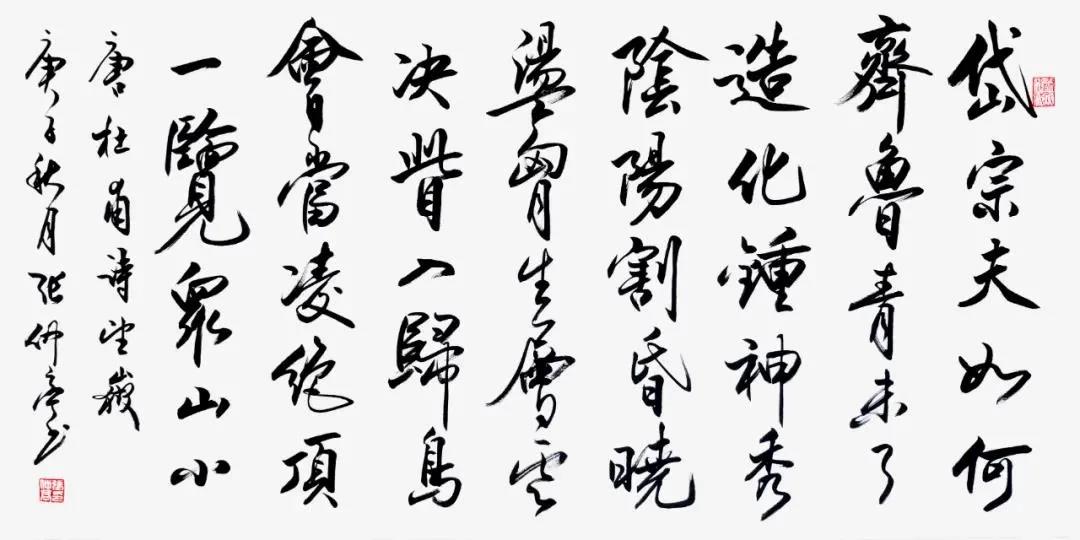 岱宗夫如何
齊魯青未了
造化鍾神秀
陰陽割昏曉
盪胷生層雲
決眥入歸鳥
會當凌絕頂
一覽眾山小
唐杜甫詩望嶽
庚子秋月張仲亭書